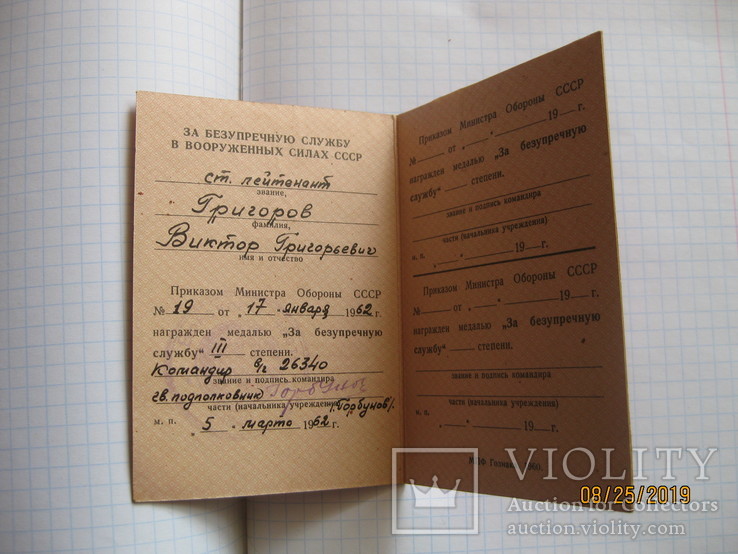 ЗА БЕЗУПРЕЧНУЮ СЛУЖБУ
В ВООРУЖЕННЫХ СИЛАХ СССР
ст. лейтенант
звание,
Григоров
фамилия,
Виктор Григорьевич
имя и отчество
Приказом Министра Обороны СССР
№ 19 от „17 января 1962 г.
награжден медалью „За безупречную
службу“ III степени.
Командир в/ч 26340
звание и подпись командира
гв. подполковник Горбунов
части (начальника учреждения) /Горбунов/.
м. п. „5 марта 1962 г.
Приказом Министра Обороны СССР
№ от „ “ 19 г.
награжден медалью „За безупречную
службу“ степени.
звание и подпись командира
части (начальника учреждения)
м. п. „ “ 19 г.
Приказом Министра Обороны СССР
№ от „ “ 19 г.
награжден медалью „За безупречную
службу“ степени.
звание и подпись командира
части (начальника учреждения)
м. п. „ “ 19 г.
VIOLITY
08/25/2019
Auction for Collectors
auction.violity.com